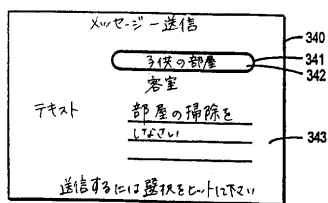 メッセージ－送信
子供の部屋
客室
テキスト 部屋の掃除を
しなさい
送信するには選択をヒットして下さい
340
341
342
343